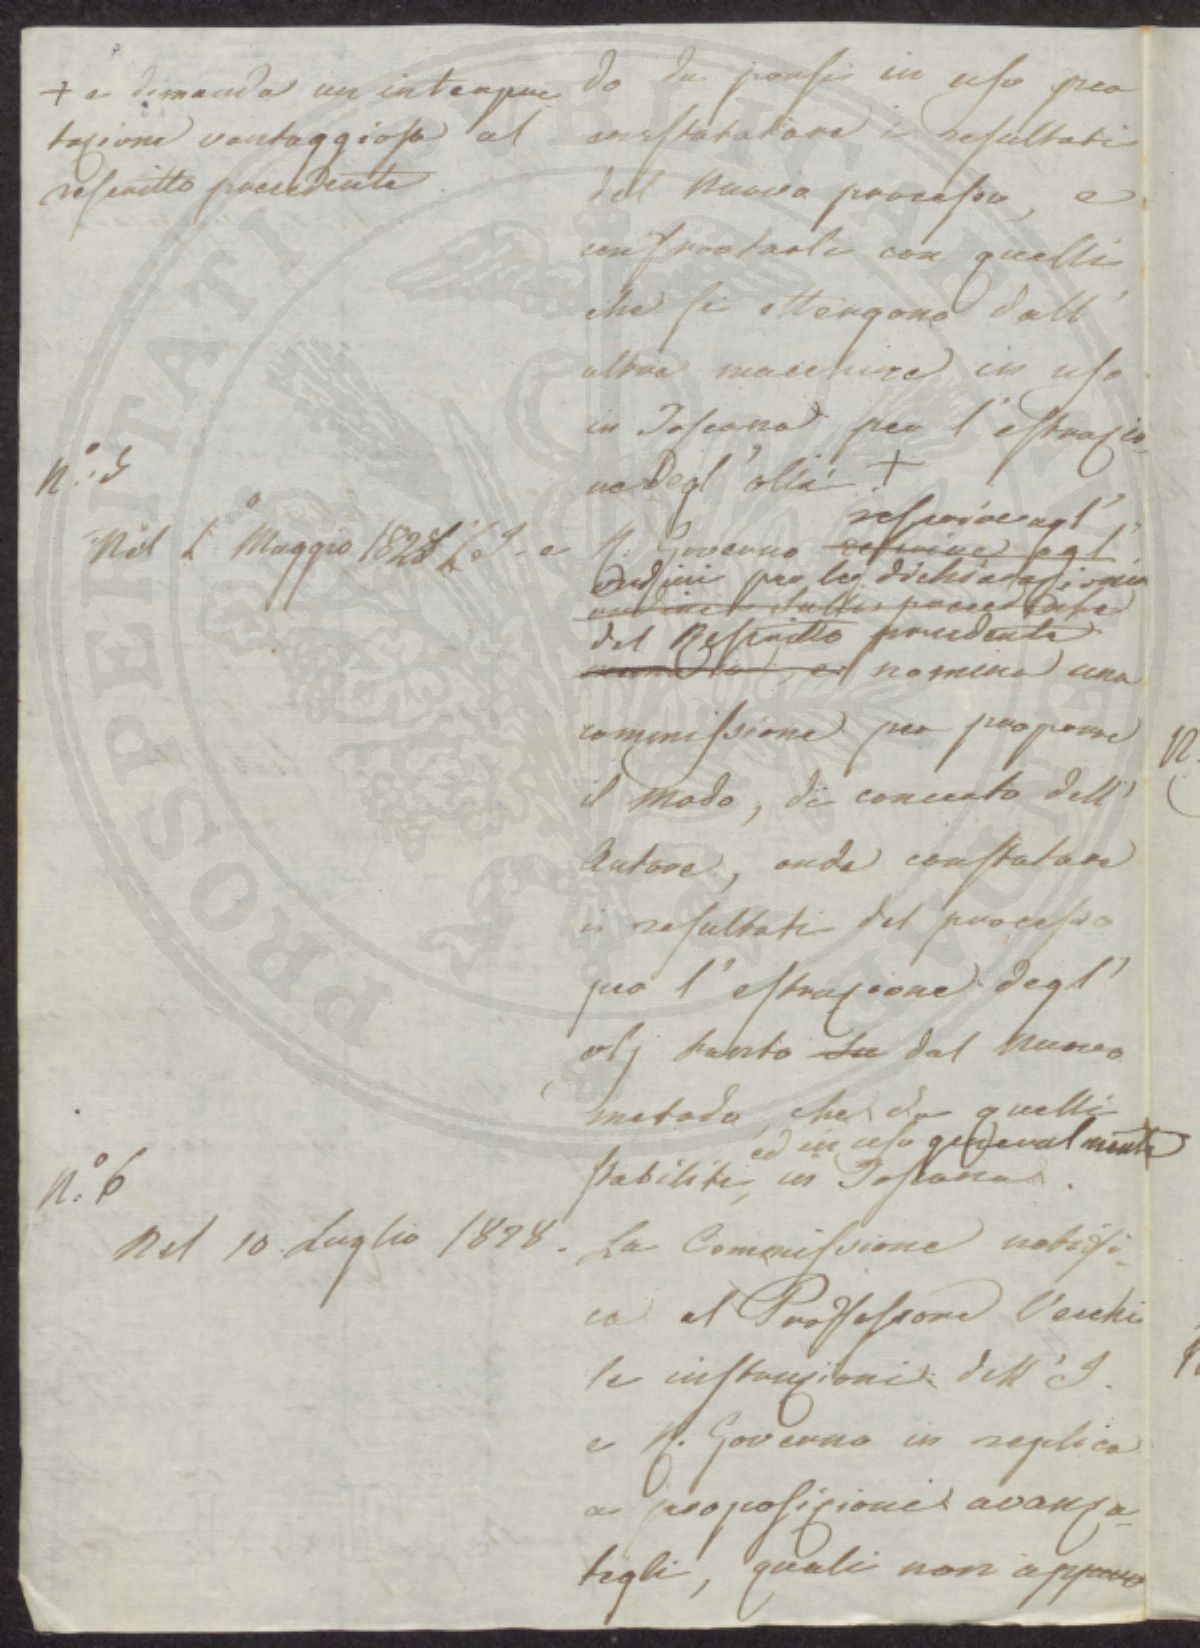 + e dimanda un interpre
tazione vantaggiosa al
rescritto precedente
do da porsi in uso per
constatatare i resultati
del Nuovo processo, e
confrontarli con quelli
che si ottengono dall'
altre macchine in uso
in Toscana per l'estrazio-
ne degl'olii. +
N.° 5
Nel 1° Maggio 1828 L'I. e
R. Governo rescrive agl'
rescrive agl'
ordini per le dichiarazioni
del Rescritto precedente
nomina una
commissione per proporre
il modo, di concerto dell'
Autore, onde constatare
i resultati del processo
per l'estrazione degl'
olj tanto su dal Nuovo
metodo, che da quelli
ed in uso generalmente
stabiliti, in Toscana.
N.° 6
Del 10 Luglio 1828.
La Commissione notifi-
ca al Professore Vecchi
le instruzioni dell'I.
e R. Governo in replica
a proposizioni avanza-
tegli, quali non approvo